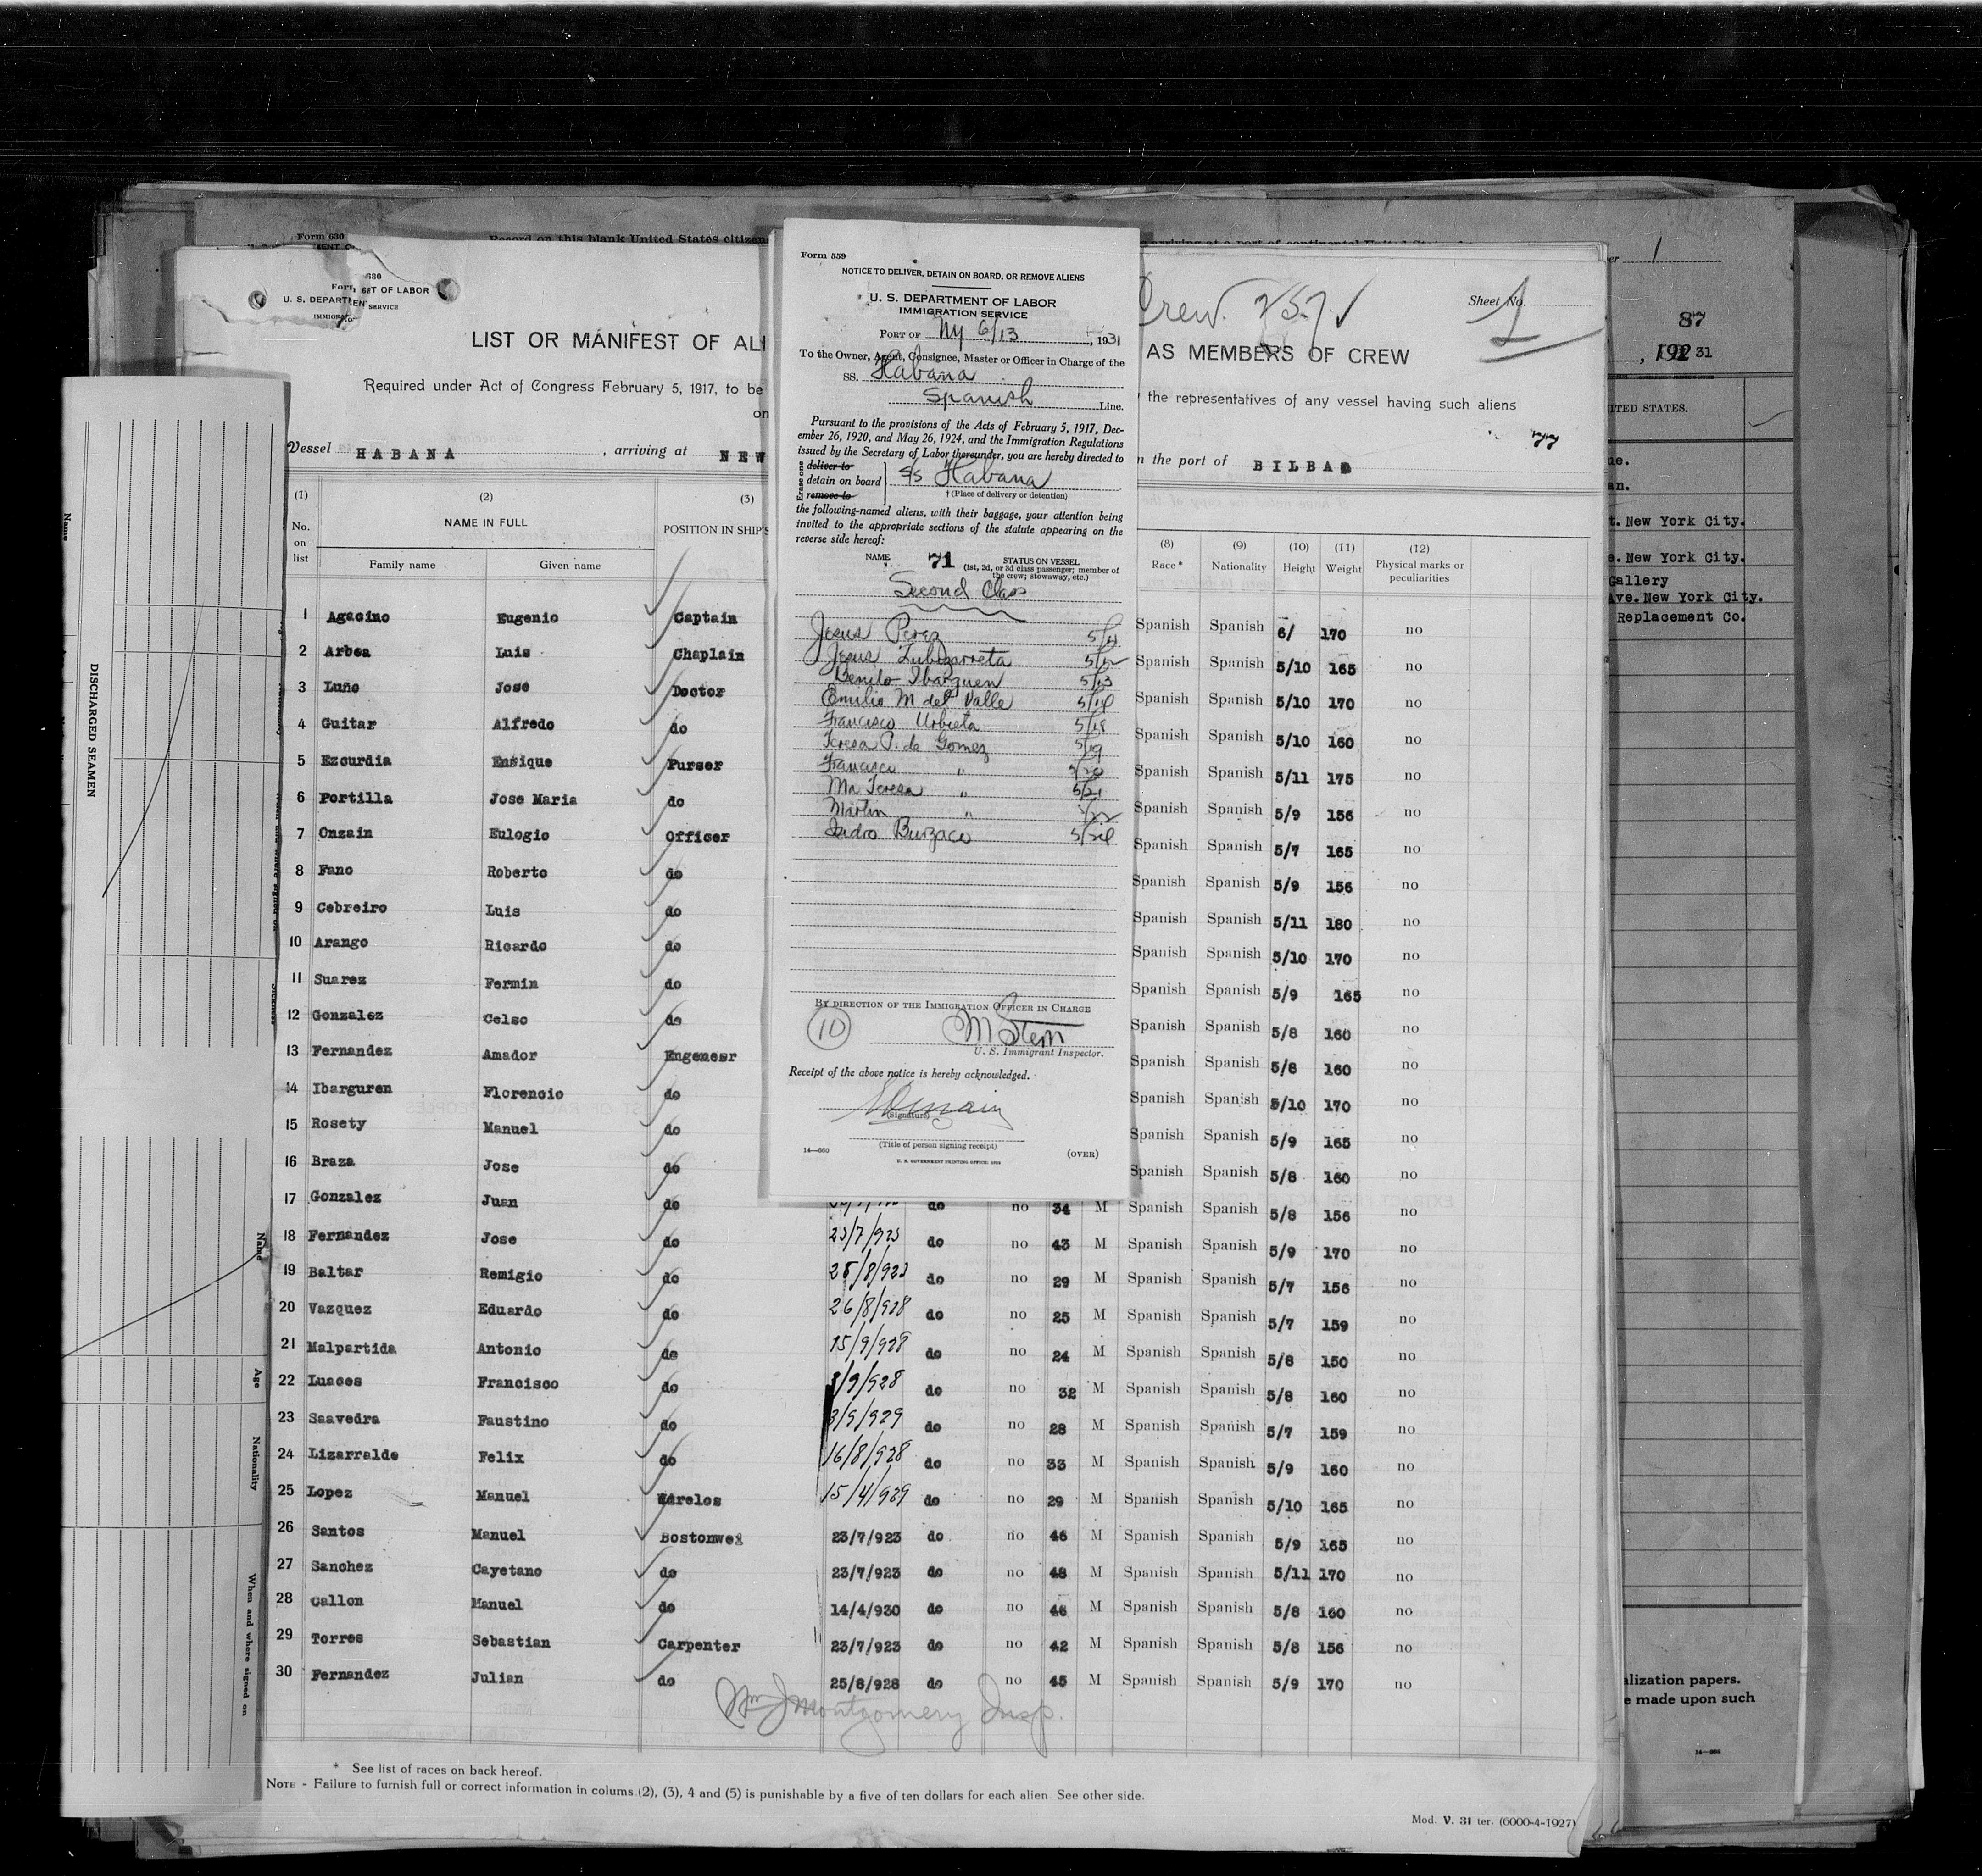 Form 630
Record on this blank United States citizens
1
680
Form
U. S. DEPARTMENT OF LABOR
SERVICE
LIST OR MANIFEST OF ALI
AS MEMBERS OF CREW
Crew. 257 ✓
Sheet No. 1
Required under Act of Congress February 5, 1917, to be
the representatives of any vessel having such aliens
on
Vessel HABANA, arriving at NEW
n the port of BILBAO
(1) (2) (3) (8) (9) (10) (11) (12)
No. on list NAME IN FULL POSITION IN SHIP'S Race * Nationality Height Weight Physical marks or peculiarities
Family name Given name
1 Agacino Eugenio Captain Spanish Spanish 6/ 170 no
2 Arbea Luis Chaplain Spanish Spanish 5/10 165 no
3 Luño José Doctor Spanish Spanish 5/10 170 no
4 Guitar Alfredo do Spanish Spanish 5/10 160 no
5 Ezcurdia Ensique Purser Spanish Spanish 5/11 175 no
6 Portilla Jose Maria do Spanish Spanish 5/9 156 no
7 Onzain Eulogio Officer Spanish Spanish 5/7 165 no
8 Fano Roberto do Spanish Spanish 5/9 156 no
9 Cebreiro Luis do Spanish Spanish 5/11 180 no
10 Arango Ricardo do Spanish Spanish 5/10 170 no
11 Suarez Fermin do Spanish Spanish 5/9 165 no
12 Gonzalez Celso do Spanish Spanish 5/8 160 no
13 Fernandez Amador Engeneer Spanish Spanish 5/8 160 no
14 Ibarguren Florencio do Spanish Spanish 5/10 170 no
15 Rosety Manuel do Spanish Spanish 5/9 165 no
16 Braza Jose do Spanish Spanish 5/8 160 no
17 Gonzalez Juan do do no 34 M Spanish Spanish 5/8 156 no
18 Fernandez Jose do 23/7/923 do no 43 M Spanish Spanish 5/9 170 no
19 Baltar Remigio do 25/8/923 do no 29 M Spanish Spanish 5/7 156 no
20 Vazquez Eduardo do 26/8/928 do no 25 M Spanish Spanish 5/7 159 no
21 Malpartida Antonio do 15/9/928 do no 24 M Spanish Spanish 5/8 150 no
22 Luaces Francisco do /9/928 do no 32 M Spanish Spanish 5/8 160 no
23 Saavedra Faustino do 3/9/929 do no 28 M Spanish Spanish 5/7 159 no
24 Lizarralde Felix do 16/8/928 do no 33 M Spanish Spanish 5/9 160 no
25 Lopez Manuel 15/4/929 do no 29 M Spanish Spanish 5/10 165 no
26 Santos Manuel 23/7/923 do no 46 M Spanish Spanish 5/9 165 no
27 Sanchez Cayetano do 23/7/923 do no 48 M Spanish Spanish 5/11 170 no
28 Callon Manuel do 14/4/930 do no 46 M Spanish Spanish 5/8 160 no
29 Torres Sebastian Carpenter 23/7/923 do no 42 M Spanish Spanish 5/8 156 no
30 Fernandez Julian do 25/8/928 do no 45 M Spanish Spanish 5/9 170 no
Wm J Montgomery Insp.
* See list of races on back hereof.
NOTE - Failure to furnish full or correct information in colums (2), (3), 4 and (5) is punishable by a five of ten dollars for each alien. See other side.
Mod. V. 31 ter. (6000-4-1927)
Form 559
NOTICE TO DELIVER, DETAIN ON BOARD, OR REMOVE ALIENS
U. S. DEPARTMENT OF LABOR
IMMIGRATION SERVICE
PORT OF NY 6/13, 1931
To the Owner, Agent, Consignee, Master or Officer in Charge of the
SS. Habana
Spanish Line.
Pursuant to the provisions of the Acts of February 5, 1917, Dec-
ember 26, 1920, and May 26, 1924, and the Immigration Regulations
issued by the Secretary of Labor thereunder, you are hereby directed to
Erase one
deliver to
detain on board
remove to
S/S Habana
† (Place of delivery or detention)
the following-named aliens, with their baggage, your attention being
invited to the appropriate sections of the statute appearing on the
reverse side hereof:
NAME 71 STATUS ON VESSEL
(1st, 2d, or 3d class passenger; member of
the crew; stowaway, etc.)
Second Class
Jesus Perez 5/11
Jesus Zubizarreta 5/12
Benito Ibarguen 5/13
Emilio M del Valle 5/14
Francisco Urbieta 5/18
Teresa P. de Gomez 5/19
Francisco " 5/20
Ma Teresa " 5/21
Martin " 5/22
Isidro Burzaco 5/24
BY DIRECTION OF THE IMMIGRATION OFFICER IN CHARGE
10
M Stern
U. S. Immigrant Inspector.
Receipt of the above notice is hereby acknowledged.
(Signature)
(Title of person signing receipt)
14—660
(OVER)
U. S. GOVERNMENT PRINTING OFFICE
87
, 192 31
ITED STATES.
ue.
an.
t. New York City.
e. New York City.
Gallery
Ave. New York City.
Replacement Co.
alization papers.
e made upon such
Name
DISCHARGED SEAMEN
Sickness
Name
Age
Nationality
When and where signed on